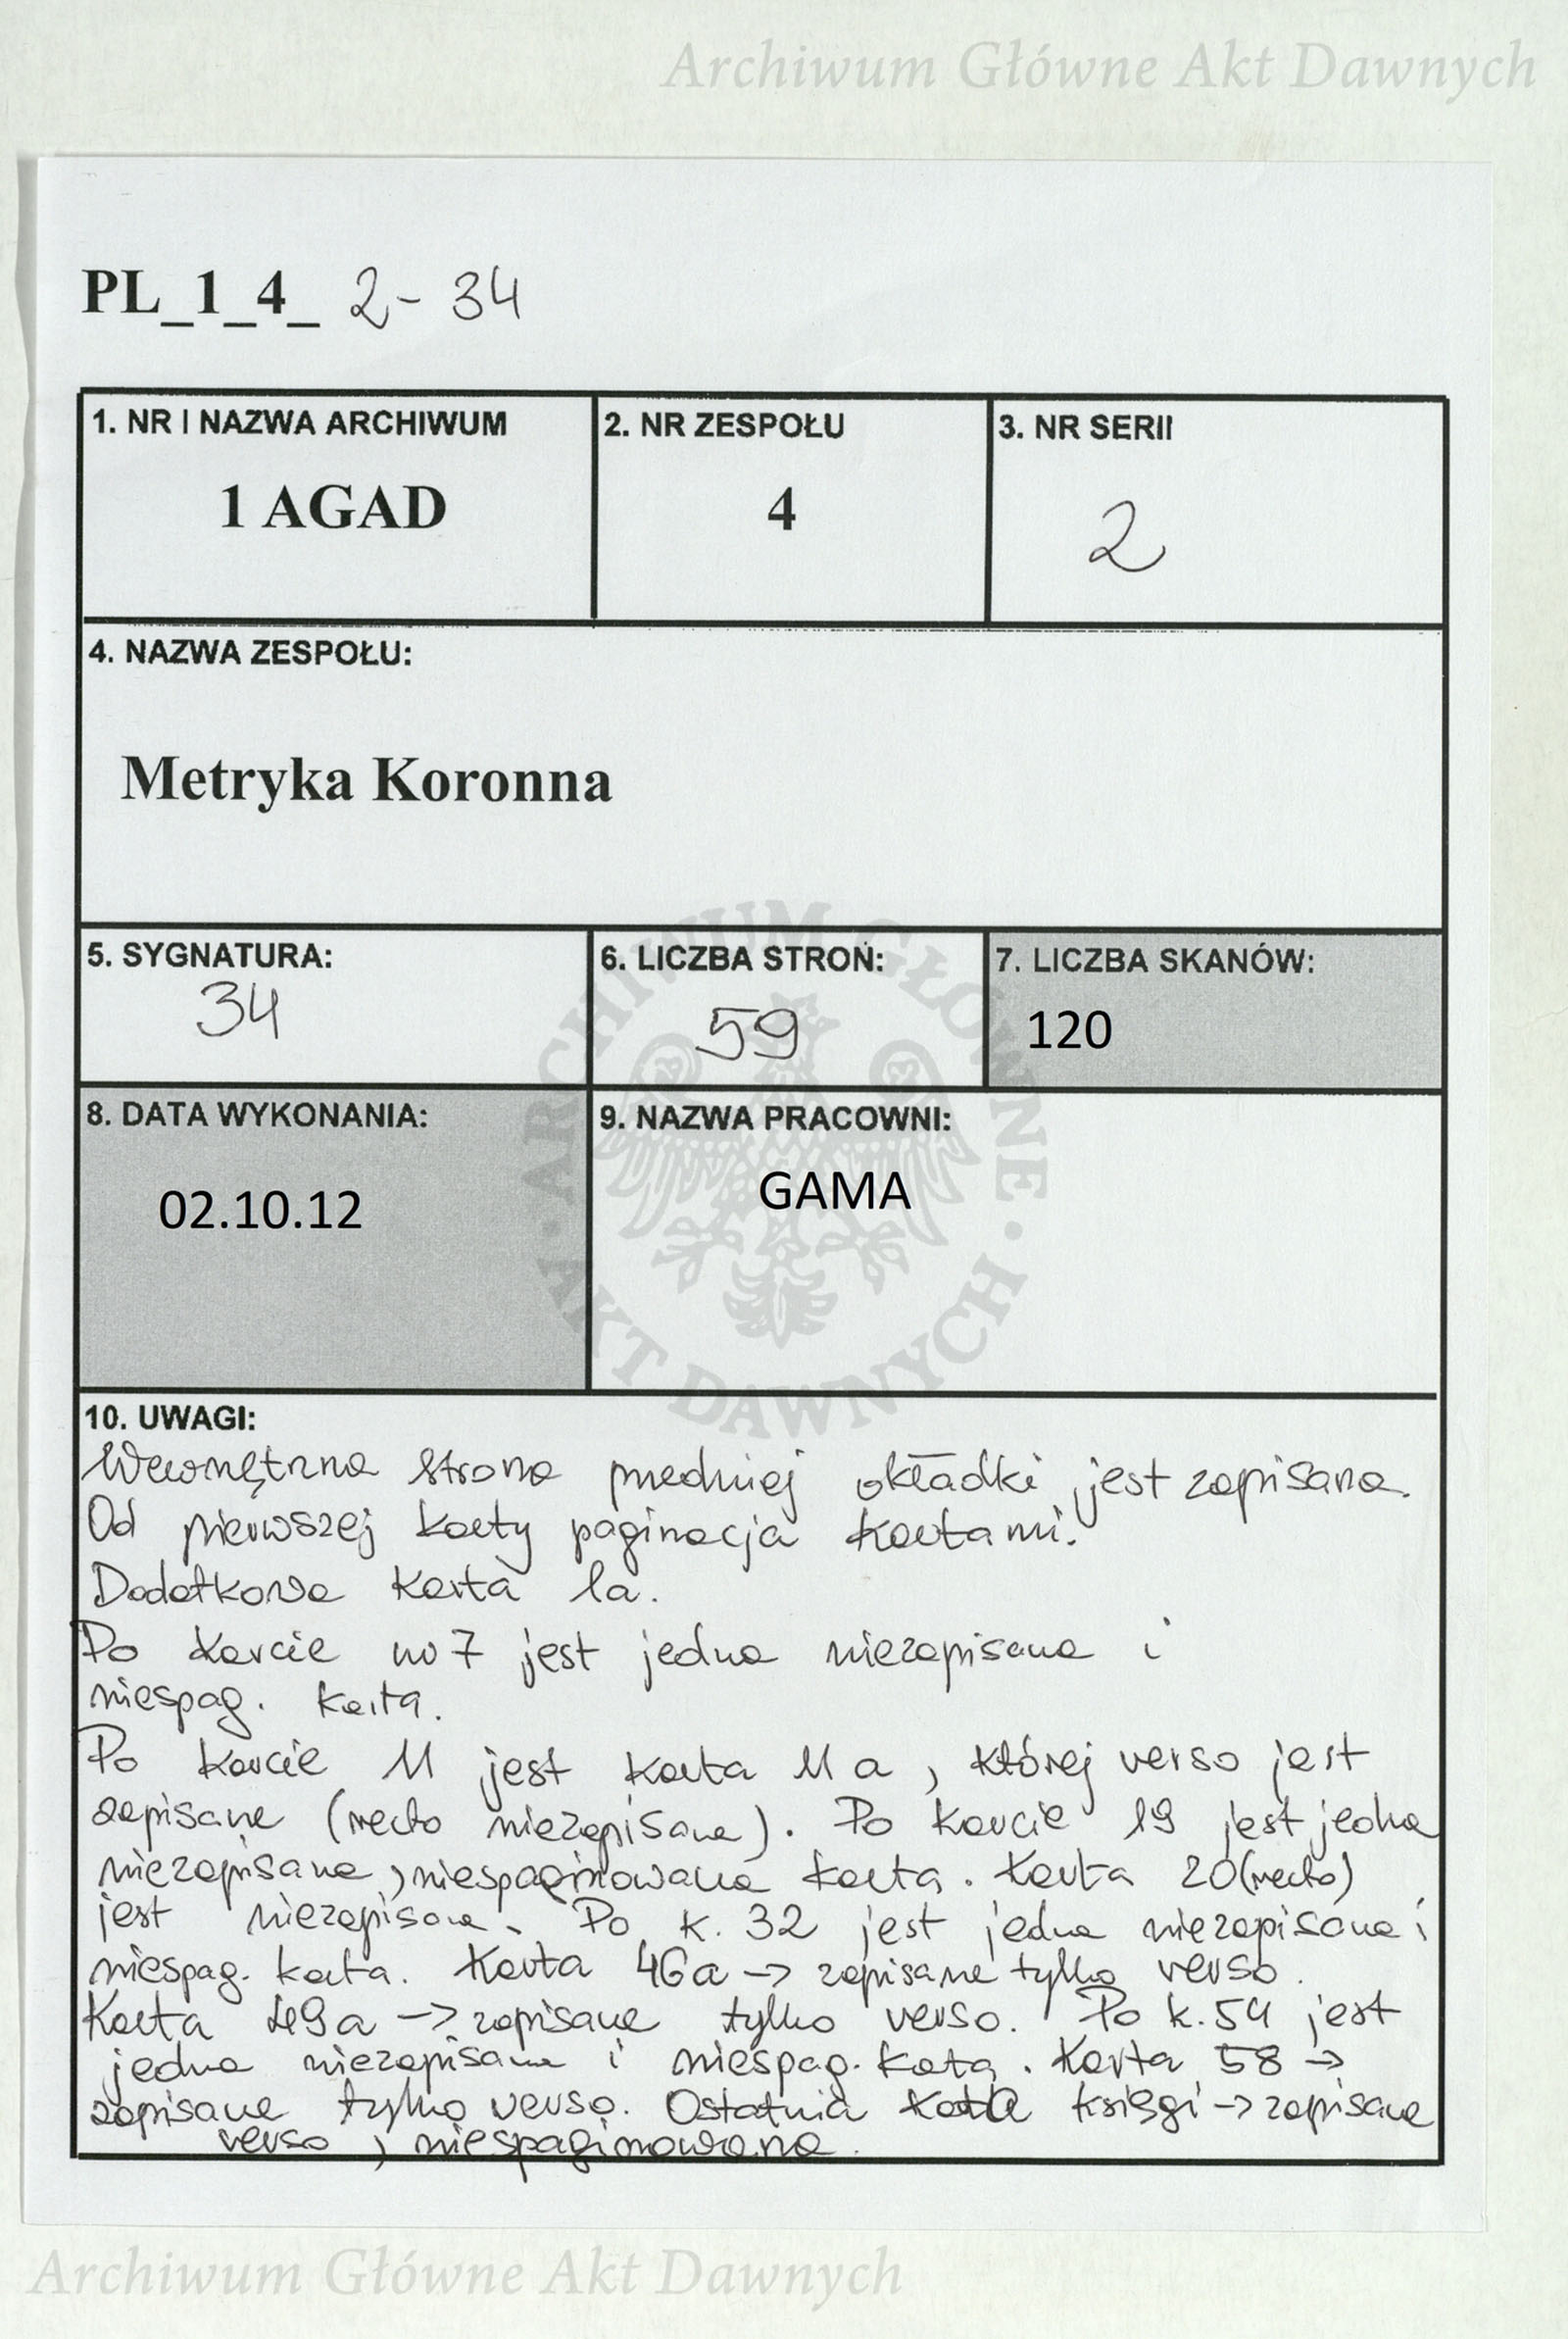 Archiwum Główne Akt Dawnych
PL_1_4_ 2-34
1. NR I NAZWA ARCHIWUM
1 AGAD
2. NR ZESPOŁU
4
3. NR SERII
2
4. NAZWA ZESPOŁU:
Metryka Koronna
5. SYGNATURA:
34
6. LICZBA STRON:
59
7. LICZBA SKANÓW:
120
8. DATA WYKONANIA:
02.10.12
9. NAZWA PRACOWNI:
GAMA
ARCHIWUM GŁÓWNE · AKT DAWNYCH ·
10. UWAGI:
Wewnętrzna strona przedniej okładki jest zapisana.
Od pierwszej karty paginacja kartami.
Dodatkowa karta 1a.
Po karcie nr 7 jest jedna niezapisana i
niespag. karta.
Po karcie 11 jest karta 11a, której verso jest
zapisane (recto niezapisane). Po karcie 19 jest jedna
niezapisana, niespaginowana karta. Karta 20 (recto)
jest niezapisana. Po k. 32 jest jedna niezapisana i
niespag. karta. Karta 46a -> zapisane tylko verso.
Karta 49a -> zapisane tylko verso. Po k. 54 jest
jedna niezapisana i niespag. karta. Karta 58 ->
zapisane tylko verso. Ostatnia karta księgi -> zapisane
verso, niespaginowana.
Archiwum Główne Akt Dawnych